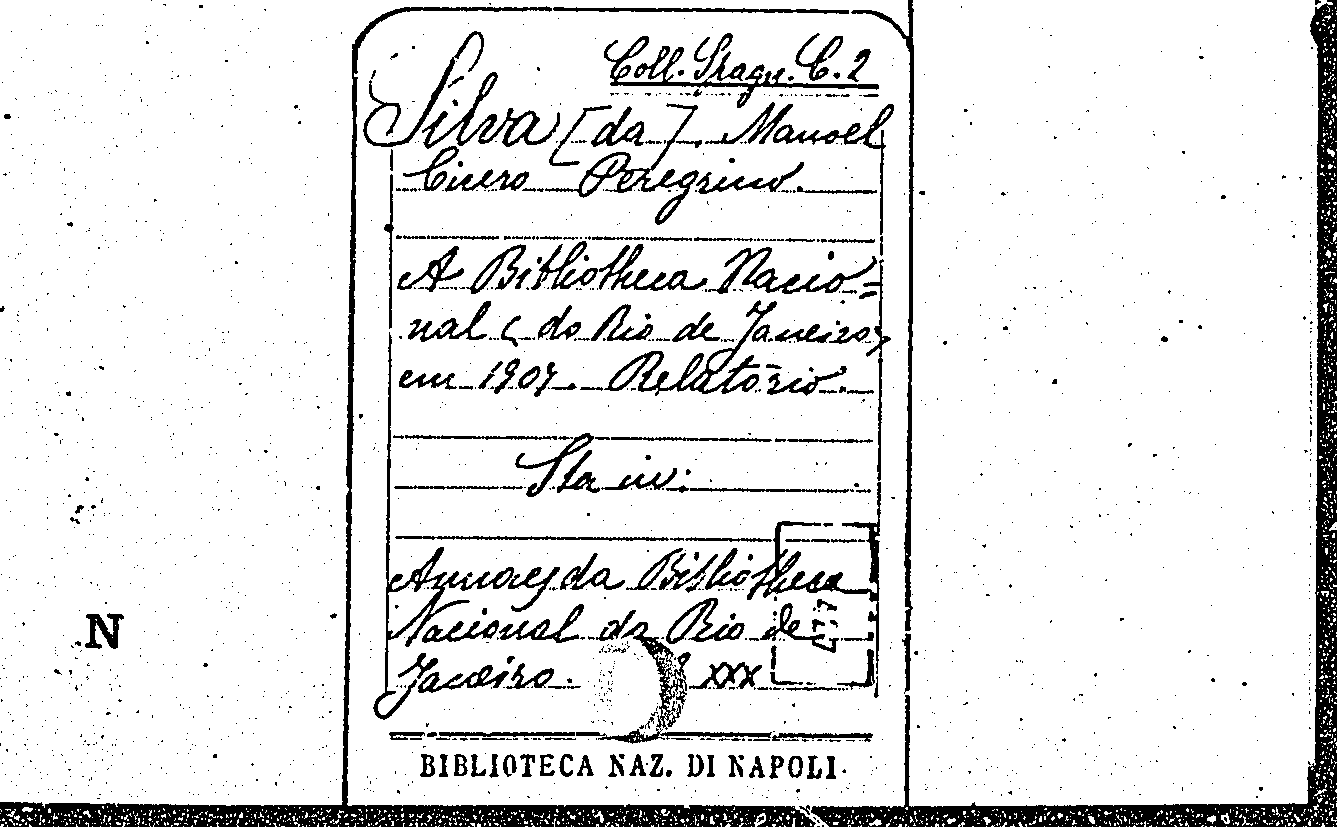 Coll. Sragn. C. 2
Silva [da]. Manoel
Cicero Peregrino.
A Bibliotheca Nacio=
nal (do Rio de Janeiro)
em 1907. Relatório.
Sta in:
Annaes da Bibliotheca
Nacional do Rio de
Janeiro. XXX
477
N
BIBLIOTECA NAZ. DI NAPOLI